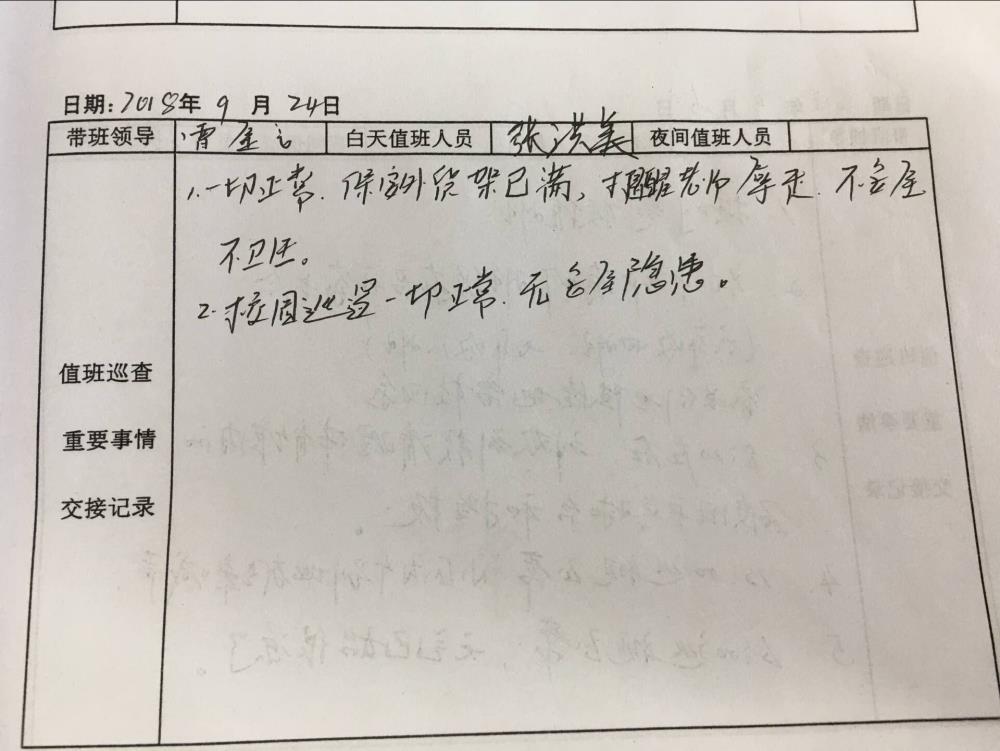 日期：2018年 9 月 24日
带班领导 白天值班人员 张洪美 夜间值班人员
1.一切正常.保安外货架已满，提醒老师拿走.不会屋
不卫生。
2.校园巡逻一切正常.无安全隐患。
值班巡查
重要事情
交接记录